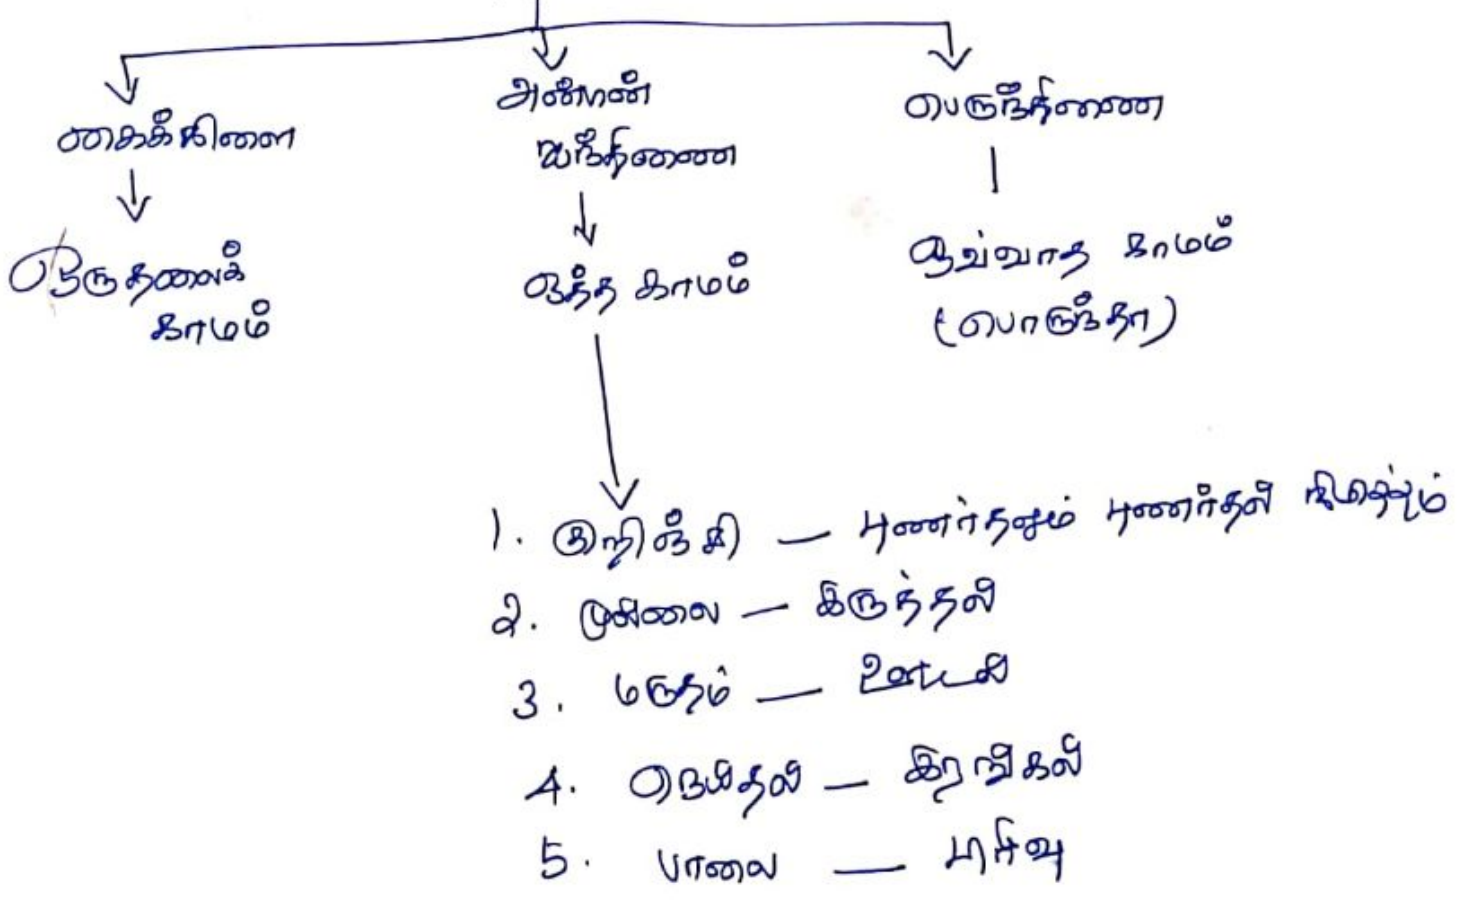 கைக்கிளை
ஒருதலைக்
காமம்
அன்பின்
ஐந்திணை
ஒத்த காமம்
பெருந்திணை
ஒவ்வாத காமம்
(பொருந்தா)
1. குறிஞ்சி — புணர்தலும் புணர்தல்
2. முல்லை — இருத்தல்
3. மருதம் — ஊடல்
4. நெய்தல் — இரங்கல்
5. பாலை — பிரிவு